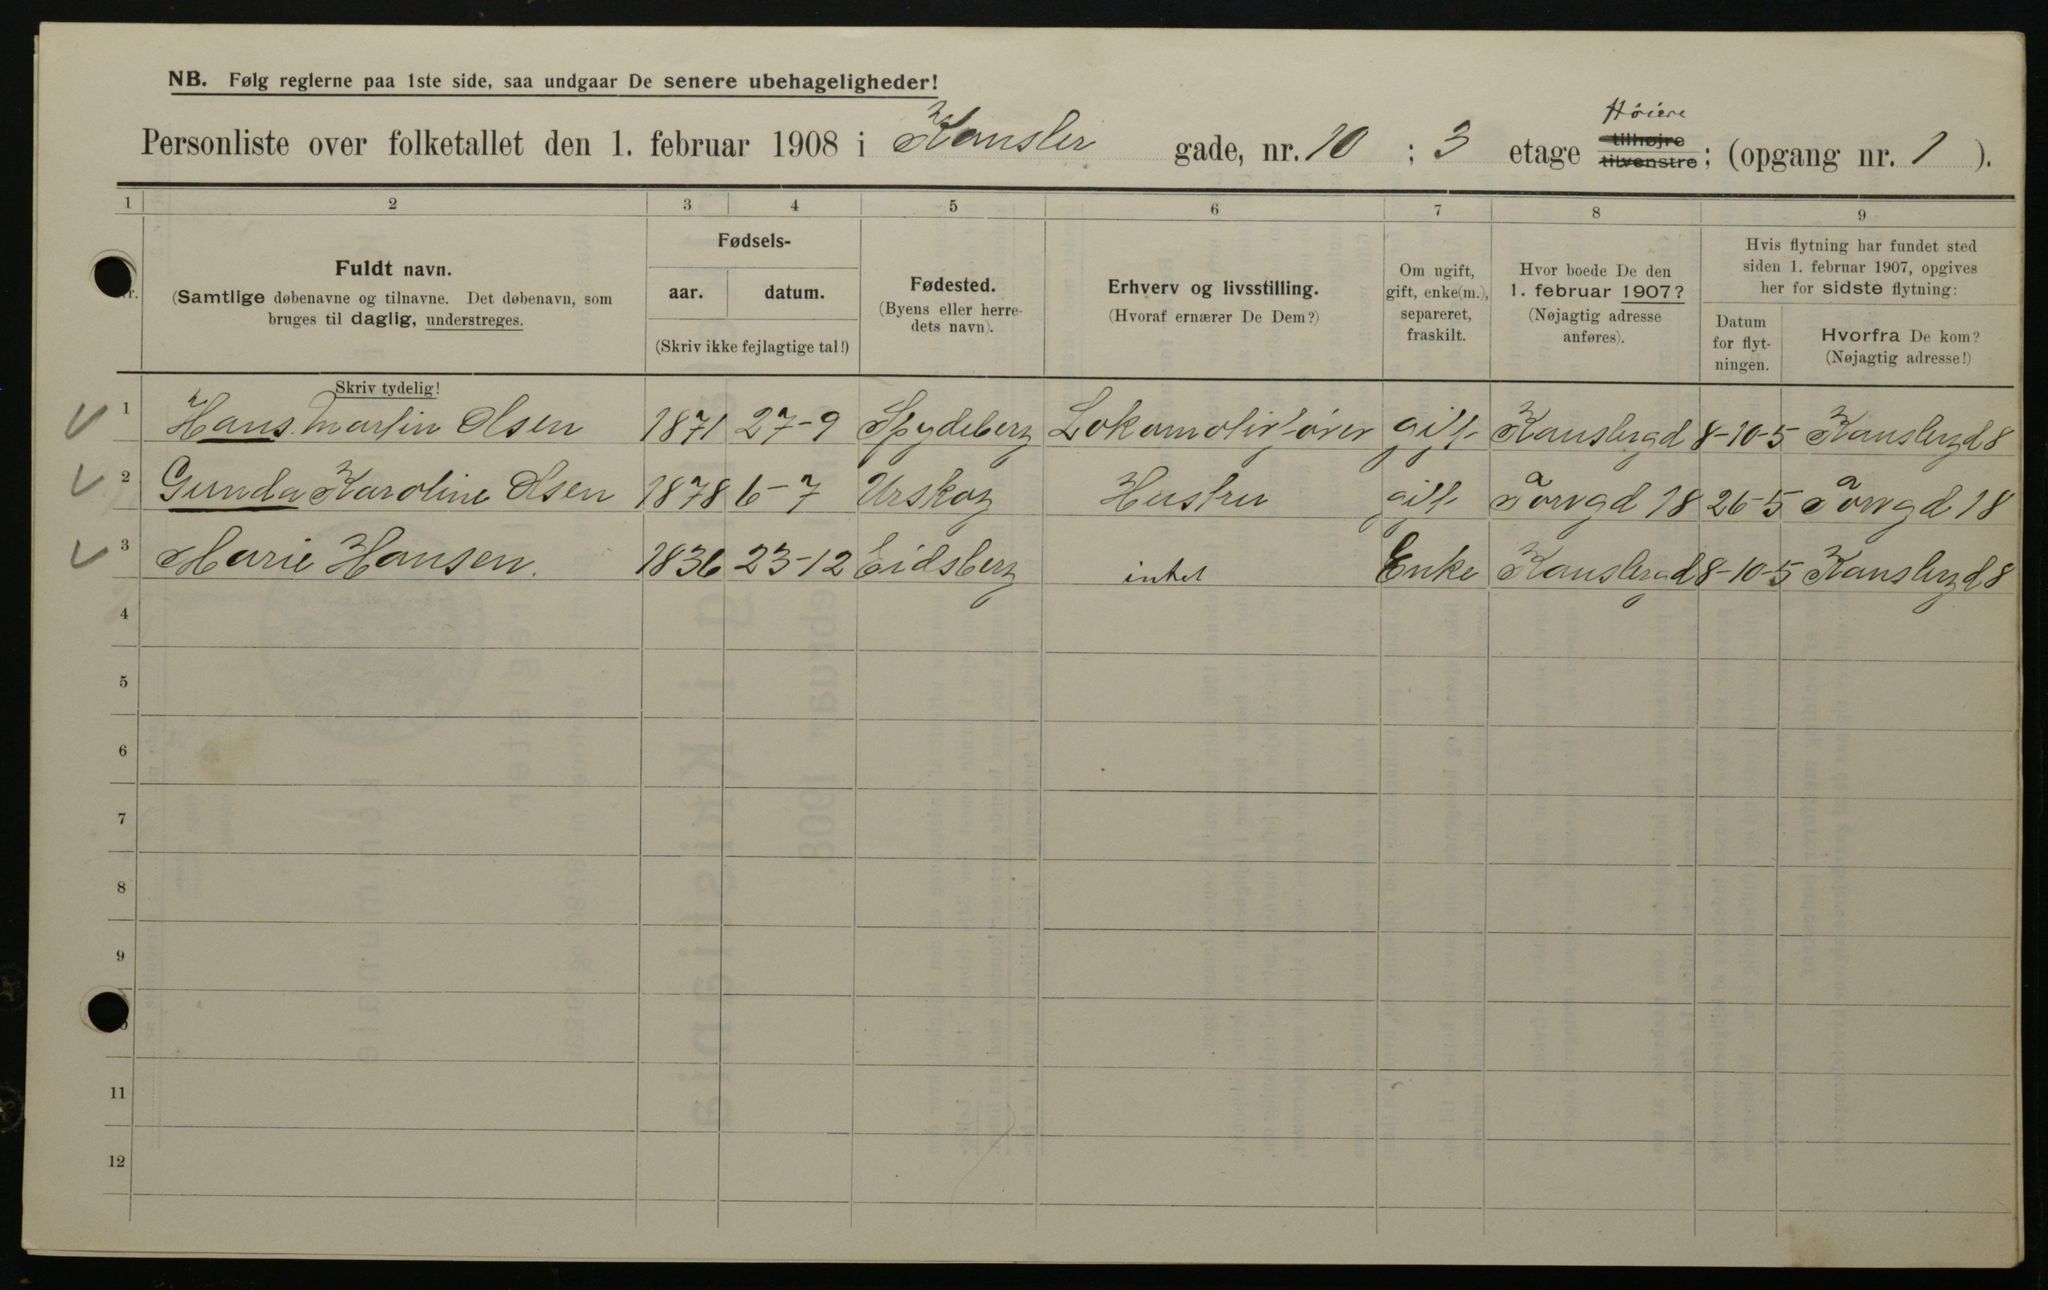 NB. Følg reglerne paa 1ste side, saa undgaar De senere ubehageligheder!
Høiere
Personliste over folketallet den 1. februar 1908 i Kansler gade, nr. 10 ; 3 etage tilhøjre tilvenstre; (opgang nr. 1 ).
1 2 3 4 5 6 7 8 9
Nr.
Fuldt navn.
(Samtlige døbenavne og tilnavne. Det døbenavn, som
bruges til daglig, understreges.
Skriv tydelig!
Fødsels-
aar. datum.
(Skriv ikke fejlagtige tal!)
Fødested.
(Byens eller herre-
dets navn).
Erhverv og livsstilling.
(Hvoraf ernærer De Dem?)
Om ugift,
gift, enke(m.),
separeret,
fraskilt.
Hvor boede De den
1. februar 1907?
(Nøjagtig adresse
anføres).
Hvis flytning har fundet sted
siden 1. februar 1907, opgives
her for sidste flytning:
Datum
for flyt-
ningen.
Hvorfra De kom?
(Nøjagtig adresse!)
1 Hans Martin Olsen 1871 27-9 Spydeberg Lokomotivfører gift Kanslergd 8-10-5 Kanslergd 8
2 Gunda Karoline Olsen 1878 6-7 Urskog Hustru gift Torvgd 18 26-5 Torvgd 18
3 Marie Hansen. 1836 23-12 Eidsberg intet Enke Kanslergd 8-10-5 Kanslergd 8
4
5
6
7
8
9
11
12